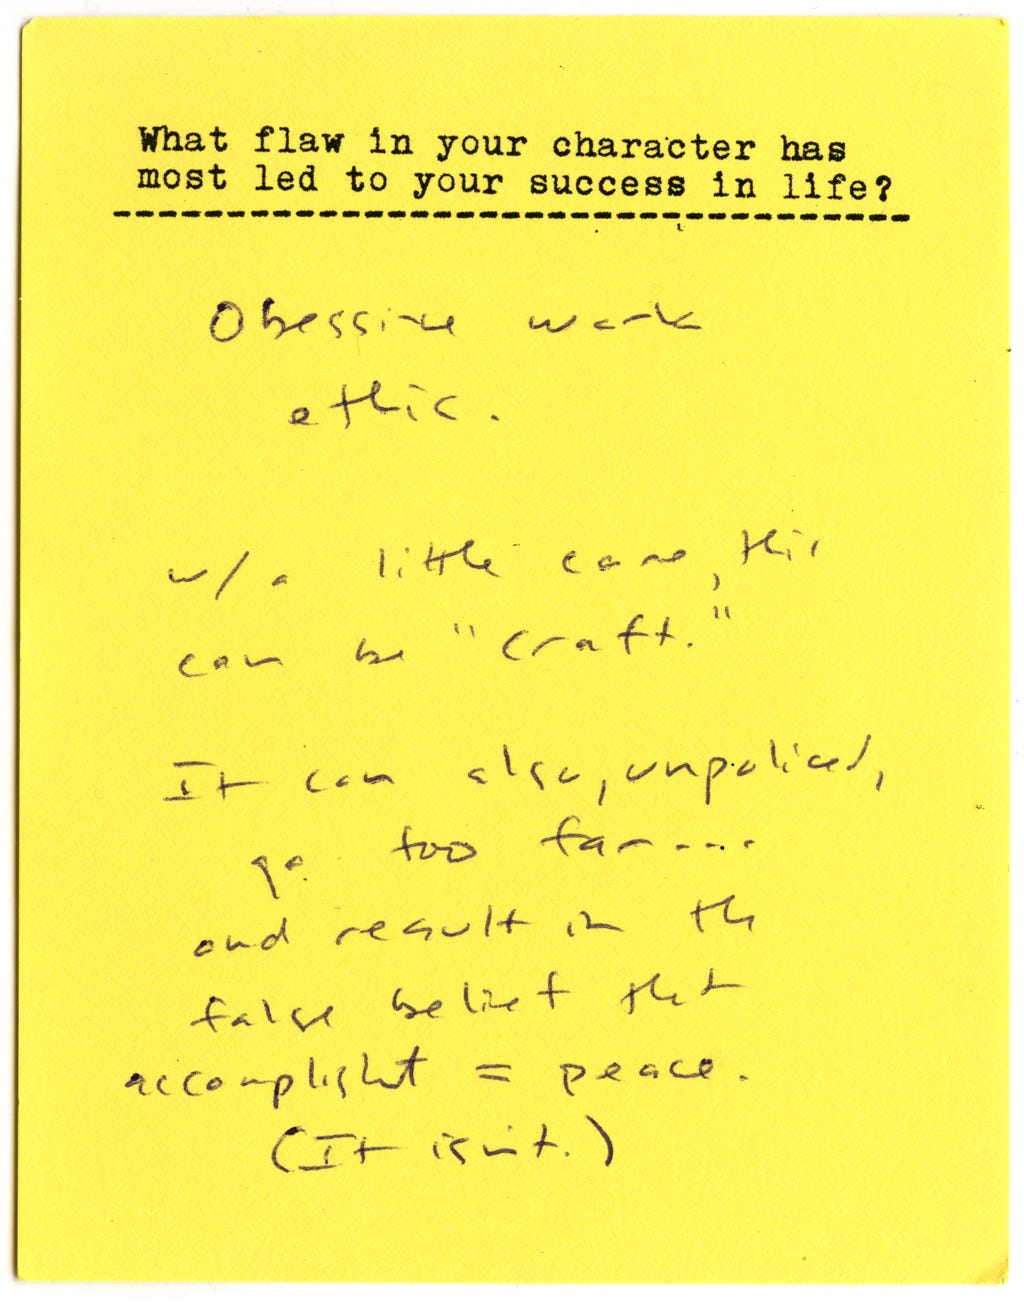 What flaw in your character has
most led to your success in life?
Obessive work
ethic.
w/a little care, this
can be "craft."
It can also, unpoliced,
go too far....
and result in the
false belief that
accomplisht = peace.
(It isn't.)